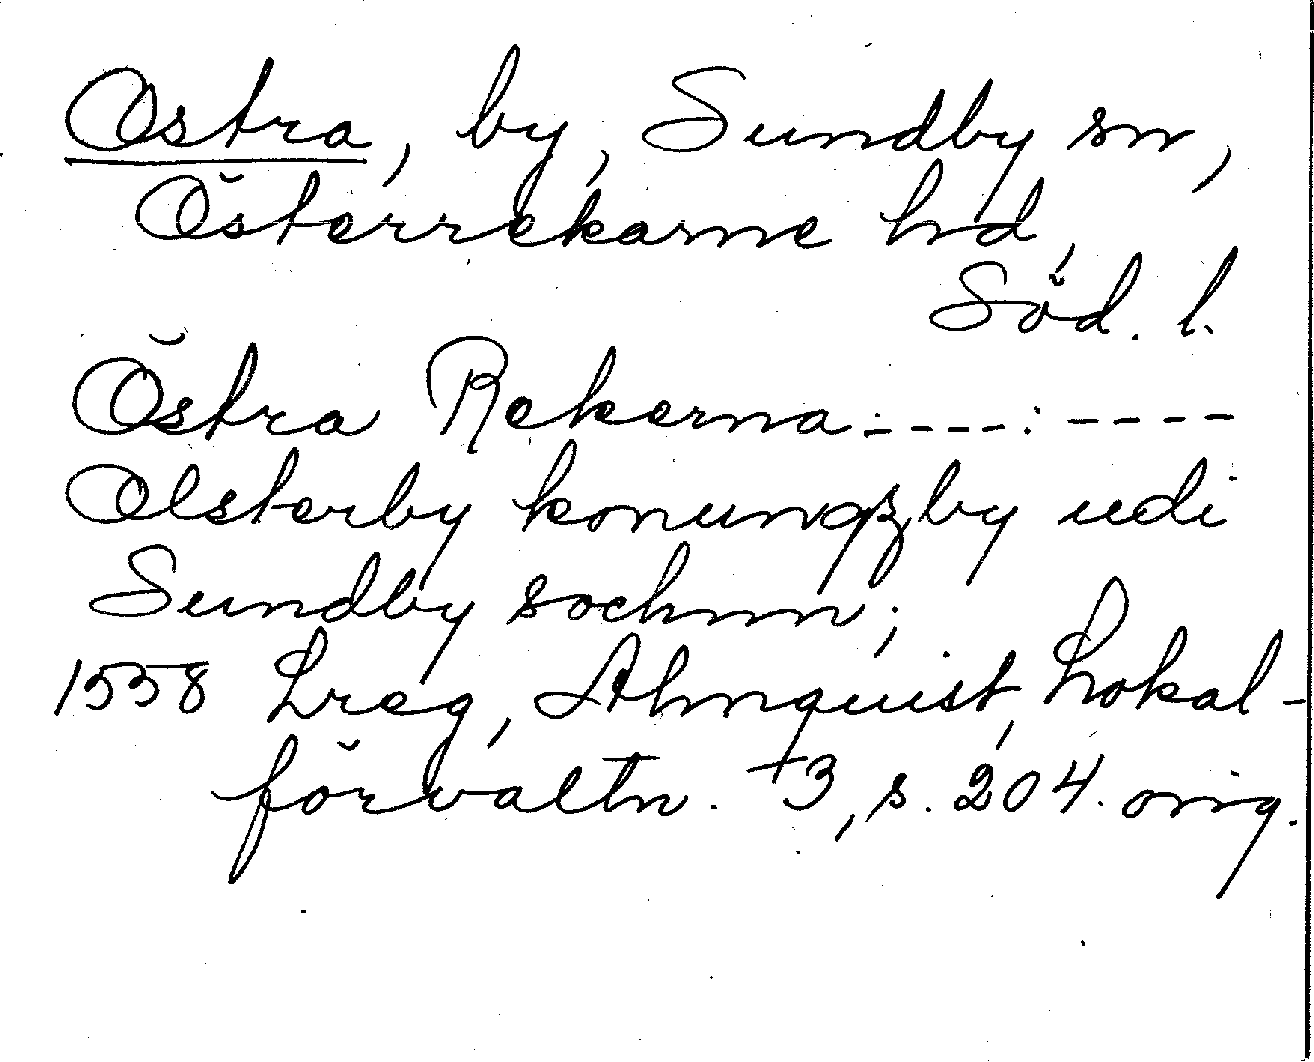 Ostra, by, Sundby sn,
Österrekarne hd,
Söd. l.
Östra Rekerna:----:----
Olsterby konungzby udi
Sundby sochnn;
1558 Lreg, Almquist, Lokal-
förvaltn. +3, s. 204. orig.